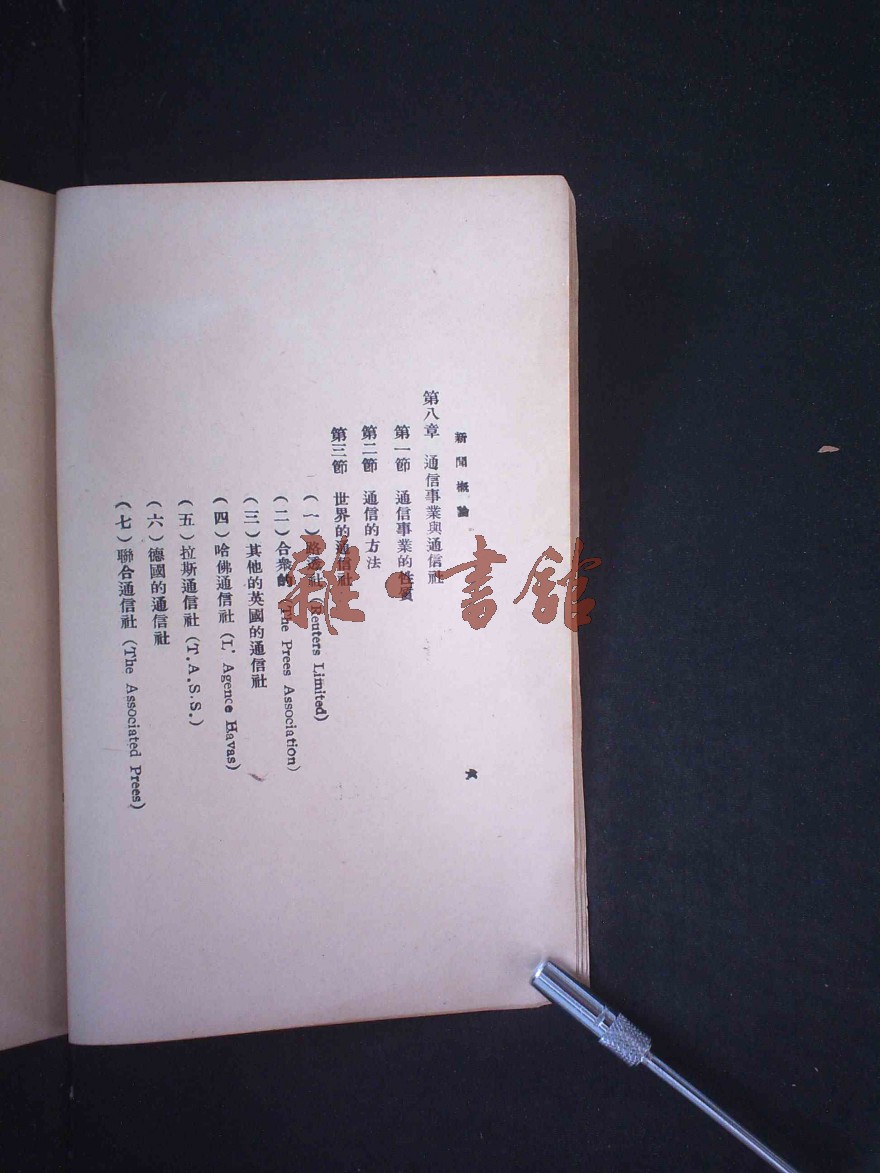 新聞概論
六
第八章 通信事業與通信社
第一節 通信事業的性質
第二節 通信的方法
第三節 世界的通信社
(一)路透社 (Reuters Limited)
(二)合衆的 (The Prees Association)
(三)其他的英國的通信社
(四)哈佛通信社 (L' Agence Havas)
(五)拉斯通信社 (T.A.S.S.)
(六)德國的通信社
(七)聯合通信社 (The Associated Prees)
雜·書館